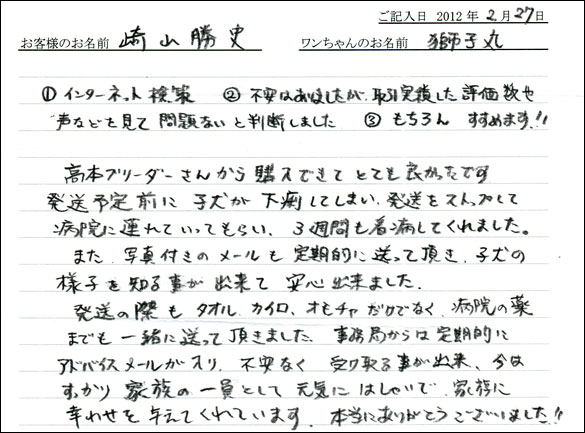 ご記入日 2012年2月27日
お客様のお名前 崎山勝史 ワンちゃんのお名前 獅子丸
① インターネット検索 ② 不安はありましたが、取引実績した評価数や
声などを見て問題ないと判断しました ③ もちろん すすめます!!
高本ブリーダーさんから購入できてとても良かったです
発送予定前に子犬が下痢してしまい、発送をストップして
病院に連れていってもらい、3週間も看病してくれました。
また、写真付きのメールも定期的に送って頂き、子犬の
様子を知る事が出来て安心出来ました。
発送の際もタオル、カイロ、オモチャだけでなく、病院の薬
までも一緒に送って頂きました。事務局からは定期的に
アドバイスメールがあり、不安なく受け取る事が出来、今は
すっかり家族の一員として元気にはしゃいで、家族に
幸わせを与えてくれています。本当にありがとうございました!!